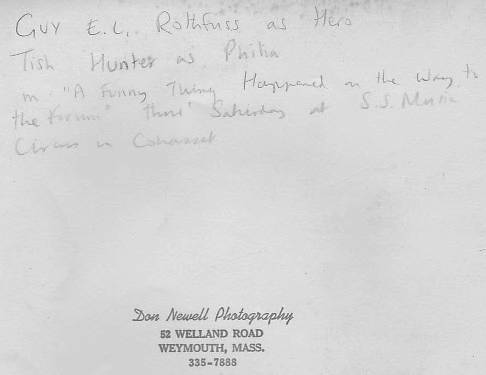 GUY E.L. Rothfuss as Hero
Tish Hunter as Philia
in "A Funny Thing Happened on the Way to
the Forum" thru' Saturday at S.S. Music
Circus in Cohasset
Don Newell Photography
52 WELLAND ROAD
WEYMOUTH, MASS.
335-7888